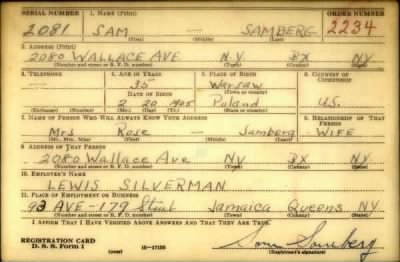 SERIAL NUMBER 1. NAME (Print) ORDER NUMBER
2081 SAM — SAMBERG 2234
(First) (Middle) (Last)
2. ADDRESS (Print)
2080 WALLACE AVE. N.Y. BX NY
(Number and street or R. F. D. number) (Town) (County) (State)
3. TELEPHONE 4. AGE IN YEARS 5. PLACE OF BIRTH 6. COUNTRY OF CITIZENSHIP
— 35 Warsaw
DATE OF BIRTH (Town or county)
2 20 1905 Poland U.S.
(Exchange) (Number) (Mo.) (Day) (Yr.) (State or country)
7. NAME OF PERSON WHO WILL ALWAYS KNOW YOUR ADDRESS 8. RELATIONSHIP OF THAT PERSON
Mrs Rose — Samberg WIFE
(Mr., Mrs., Miss) (First) (Middle) (Last)
9. ADDRESS OF THAT PERSON
2080 Wallace Ave NY BX NY
(Number and street or R. F. D. number) (Town) (County) (State)
10. EMPLOYER'S NAME
LEWIS SILVERMAN
11. PLACE OF EMPLOYMENT OR BUSINESS
AVE - 179 Street Jamaica Queens NY.
(Number and street or R. F. D. number) (Town) (County) (State)
I AFFIRM THAT I HAVE VERIFIED ABOVE ANSWERS AND THAT THEY ARE TRUE.
REGISTRATION CARD
D. S. S. Form 1 (over) 16—17105 Sam Samberg
(Registrant's signature)